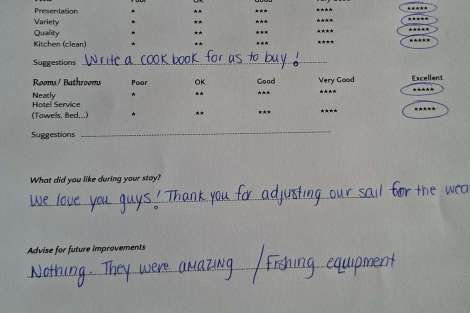 Poor OK Good Very Good
Presentation * ** *** **** *****
Variety * ** *** **** *****
Quality * ** *** **** *****
Kitchen (clean) * ** *** **** *****
Suggestions Write a cook book for us to buy!
Rooms/ Bathrooms Poor OK Good Very Good Excellent
Neatly * ** *** **** *****
Hotel Service
(Towels, Bed...) * ** *** **** *****
Suggestions
What did you like during your stay?
We love you guys! Thank you for adjusting our sail for the wea
Advise for future improvements
Nothing. They were amazing / Fishing equipment